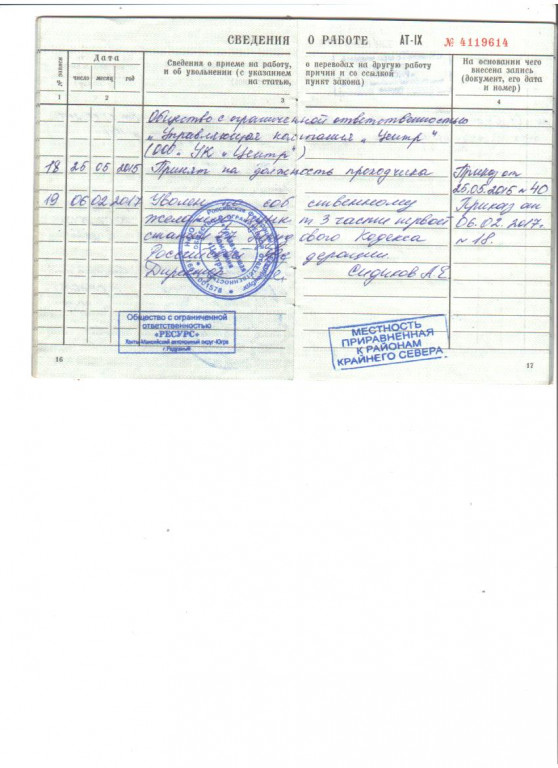 СВЕДЕНИЯ О РАБОТЕ АТ-IX № 4119614
№ записи
Дата
число месяц год
Сведения о приеме на работу, о переводах на другую работу
и об увольнении (с указанием причин и со ссылкой
на статью, пункт закона)
На основании чего
внесена запись
(документ, его дата
и номер)
1 2 3 4
Общество с ограниченной ответственностью
„Управляющая компания „Центр“
(ООО „УК „Центр“)
18 25 05 2015 Принят на должность проходчика Приказ от
25.05.2015 № 40
19 06 02 2017 Уволен соб ственному Приказ от
желанию, пункт 3 части первой 06.02.2017.
статьи ового Кодекса № 18.
Российской дерации.
Директор Сидиков А.Е
Общество с ограниченной
ответственностью
«РЕСУРС»
Ханты-Мансийский автономный округ-Югра
г.Радужный
МЕСТНОСТЬ
ПРИРАВНЕННАЯ
К РАЙОНАМ
КРАЙНЕГО СЕВЕРА
16 17